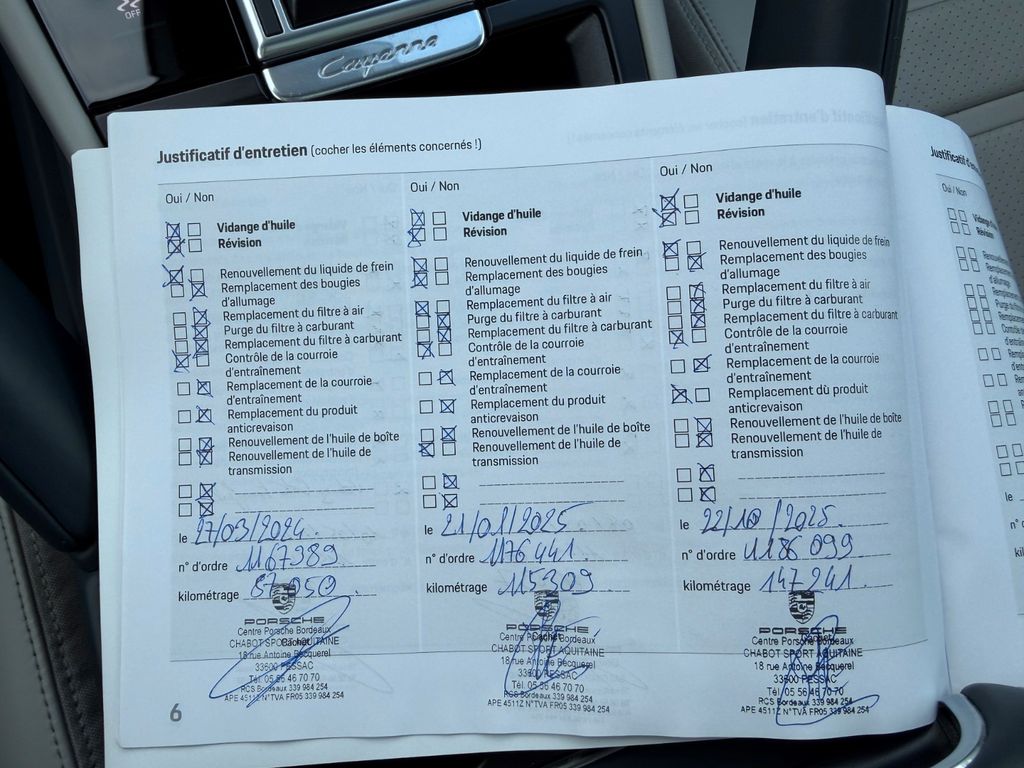 OFF
Cayenne
Justificatif d'entretien (cocher les éléments concernés !)
Oui / Non
Vidange d'huile
Révision
Renouvellement du liquide de frein
Remplacement des bougies
d'allumage
Remplacement du filtre à air
Purge du filtre à carburant
Remplacement du filtre à carburant
Contrôle de la courroie
d'entraînement
Remplacement de la courroie
d'entraînement
Remplacement du produit
anticrevaison
Renouvellement de l'huile de boîte
Renouvellement de l'huile de
transmission
le 27/03/2024
n° d'ordre 1167389
kilométrage 87050
PORSCHE
Centre Porsche Bordeaux
CHABOT SPORT AQUITAINE
18 rue Antoine Becquerel
33600 PESSAC
Tél. 05 56 46 70 70
RCS Bordeaux 339 984 254
APE 4511Z N°TVA FR05 339 984 254
6
Oui / Non
Vidange d'huile
Révision
Renouvellement du liquide de frein
Remplacement des bougies
d'allumage
Remplacement du filtre à air
Purge du filtre à carburant
Remplacement du filtre à carburant
Contrôle de la courroie
d'entraînement
Remplacement de la courroie
d'entraînement
Remplacement du produit
anticrevaison
Renouvellement de l'huile de boîte
Renouvellement de l'huile de
transmission
le 21/01/2025
n° d'ordre 1176441
kilométrage 115309
PORSCHE
Centre Porsche Bordeaux
CHABOT SPORT AQUITAINE
18 rue Antoine Becquerel
33600 PESSAC
Tél. 05 56 46 70 70
RCS Bordeaux 339 984 254
APE 4511Z N°TVA FR05 339 984 254
Oui / Non
Vidange d'huile
Révision
Renouvellement du liquide de frein
Remplacement des bougies
d'allumage
Remplacement du filtre à air
Purge du filtre à carburant
Remplacement du filtre à carburant
Contrôle de la courroie
d'entraînement
Remplacement de la courroie
d'entraînement
Remplacement du produit
anticrevaison
Renouvellement de l'huile de boîte
Renouvellement de l'huile de
transmission
le 22/10/2025
n° d'ordre 1186099
kilométrage 147241
PORSCHE
Centre Porsche Bordeaux
CHABOT SPORT AQUITAINE
18 rue Antoine Becquerel
33600 PESSAC
Tél. 05 56 46 70 70
RCS Bordeaux 339 984 254
APE 4511Z N°TVA FR05 339 984 254
Oui / Non
le